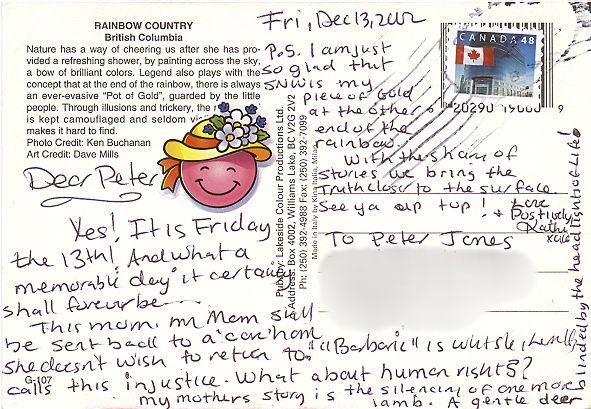 RAINBOW COUNTRY
British Columbia
Nature has a way of cheering us after she has pro-
vided a refreshing shower, by painting across the sky,
a bow of brilliant colors. Legend also plays with the
concept that at the end of the rainbow, there is always
an ever-evasive "Pot of Gold", guarded by the little
people. Through illusions and trickery, the
is kept camouflaged and seldom
makes it hard to find.
Photo Credit: Ken Buchanan
Art Credit: Dave Mills
Dear Peter
Yes! It is Friday
the 13th! And what a
memorable day it certainly
shall forever be
This morn, mr Mom shall
be sent back to a 'care' home
she doesn't wish to return to. "Barbaric" is what she herself
calls this injustice. What about human rights?
my mothers story is the silencing of one more
lamb. A gentle deer
blinded by the headlights of life!
G-107
Pub. by: Lakeside Colour Productions Ltd.
Address: Box 4002, Williams Lake, BC V2G 2V2
Ph: (250) 392-4988 Fax: (250) 392-7099
Made in Italy by Kina Italia, Milan
Fri, Dec 13, 2002
P.S. I am just
so glad that
SNW is my
piece of gold
at the other
end of the
rainbow.
With the sham of
stories we bring the
Truth closer to the surface.
See ya up top!
Love
+ Positively
Kathie
xoxo
To Peter Jones
CANADA 48
6 20290 19000 9